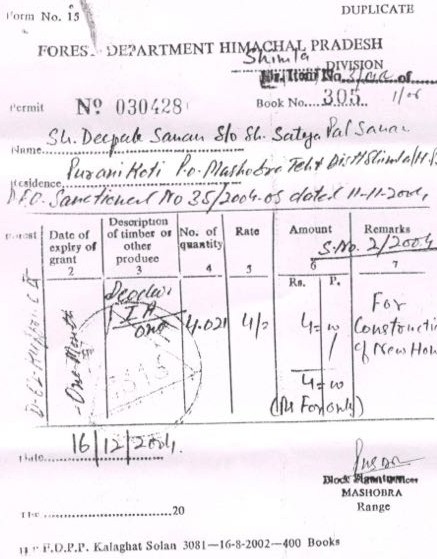 Form No. 15
DUPLICATE
FOREST DEPARTMENT HIMACHAL PRADESH
Shimla DIVISION
Permit No 030428 Book No. 305
Sh. Deepak Sanan S/o Sh. Satya Pal Sanan
Name
Purani Koti P.O. Mashobra Teh & Distt Shimla H.P
Residence
D.F.O. Sanctioned No 35/2004-05 dated 11-11-2004
Forest Date of expiry of grant Description of timber or other produce No. of quantity Rate Amount Remarks
S.No. 2/2004
2 3 4 5 6 7
Rs. P.
One Month
Deodar
IA
one
4.021 4/= 4=00
For Construction of New House
4=00
(Rs Four only)
16/12/2004
Date
The 20
Block Officer
MASHOBRA
Range
F.D.P.P. Kalaghat Solan 3081—16-8-2002—400 Books